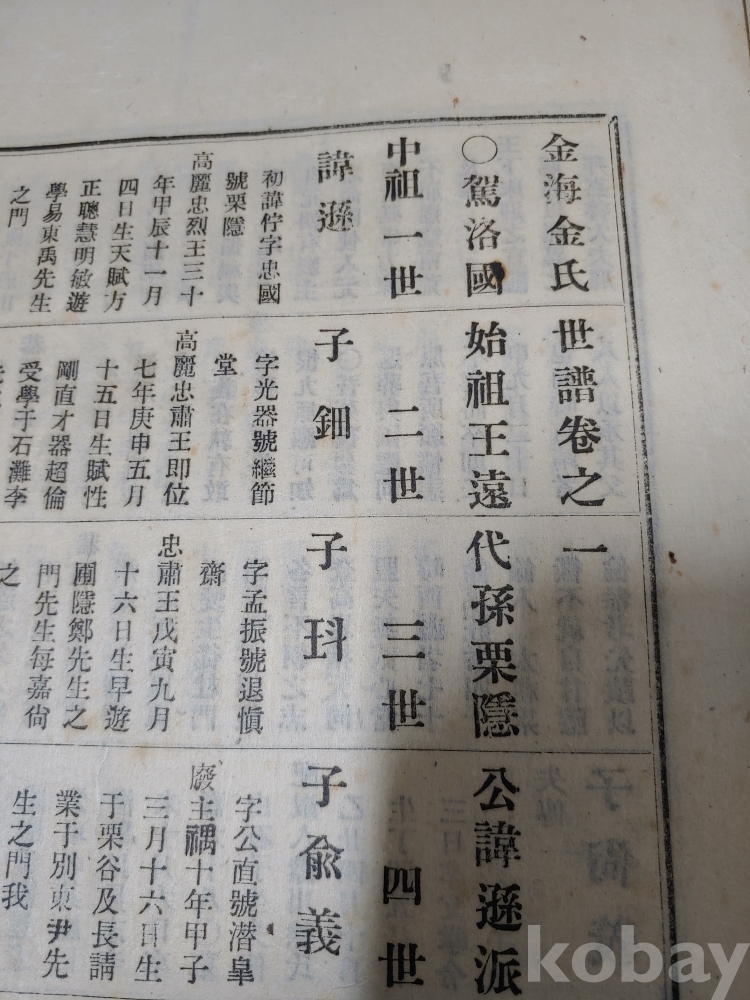 金海金氏世譜卷之一
○駕洛國始祖王遠代孫栗隱公諱遜派
中祖一世
諱遜
初諱佇字忠國
號栗隱
高麗忠烈王三十
年甲辰十一月
四日生天賦方
正聰慧明敏遊
學易東禹先生
之門
二世
子鈿
字光器號繼節
堂
高麗忠肅王即位
七年庚申五月
十五日生賦性
剛直才器超倫
受學于石灘李
三世
子㺶
字孟振號退愼
齋
忠肅王戊寅九月
十六日生早遊
圃隱鄭先生之
門先生每嘉尙
之
四世
子兪義
字公直號潜皐
廢主禑十年甲子
三月十六日生
于栗谷及長請
業于別東尹先
生之門我
kobay